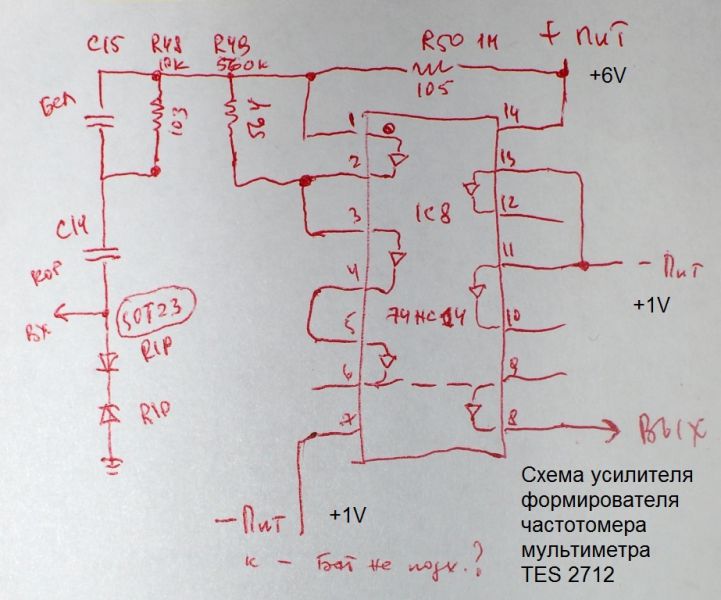 C15 R48 R49 R50 1M + Пит
10K 560K 105 +6V
Бел 103 564
1 14
2 13
3 IC8 12
C14
4 11 - Пит
кор
+1V
SOT23 74HC14 10
Вх 5
R1P 6 9
R1P 7 8 Вых
- Пит +1V
к - Бат не подх.?
Схема усилителя
формирователя
частотомера
мультиметра
TES 2712